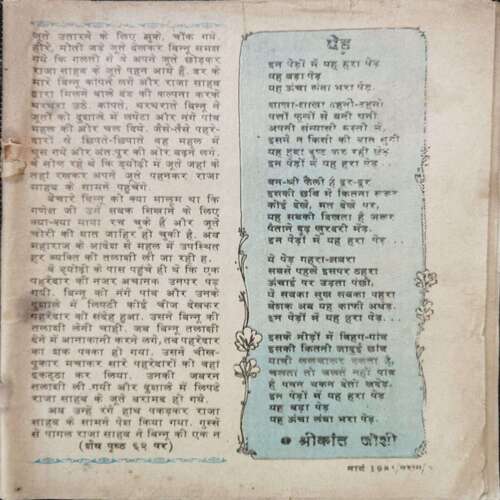 जूते उतारने के लिए झुके, चौंक गये.
हीरे, मोती जड़े जूते देखकर बिन्नू समझ
गये कि गलती से वे अपने जूते छोड़कर
राजा साहब के जूते पहन आये हैं. डर के
मारे बिन्नू कांपने लगे और राजा साहब
द्वारा मिलने वाले दंड की कल्पना करके
थरथरा उठे. कांपते, थरथराते बिन्नू ने
जूतों को दुशाले में लपेटा और नंगे पांव
महल की ओर चल दिये. जैसे-तैसे पहरे-
दारों से छिपते-छिपाते वह महल में
घुस गये और अंतःपुर की ओर बढ़ने लगे.
वे सोच रहे थे कि ड्योढ़ी में जूते जहां के
तहां रखकर अपने जूते पहनकर राजा
साहब के सामने पहुंचेंगे.
बेचारे बिन्नू को क्या मालूम था कि
गणेश जी उन्हें सबक सिखाने के लिए
क्या-क्या माया रच चुके हैं और जूते
चोरी की बात जाहिर हो चुकी है. अब
महाराज के आदेश से महल में उपस्थित
हर व्यक्ति की तलाशी ली जा रही है.
वे ड्योढ़ी के पास पहुंचे ही थे कि एक
पहरेदार की नजर अचानक उनपर पड़
गयी. बिन्नू को नंगे पांव और उनके
दुशाले में लिपटी कोई चीज देखकर
पहरेदार को संदेह हुआ. उसने बिन्नू की
तलाशी लेनी चाही. जब बिन्नू तलाशी
देने में आनाकानी करने लगे, तब पहरेदार
का शक पक्का हो गया. उसने चीख-
पुकार मचाकर सारे पहरेदारों को वहां
इकट्ठा कर लिया. उनकी जबरन
तलाशी ली गयी और दुशाले में लिपटे
राजा साहब के जूते बरामद हो गये.
अब उन्हें रंगे हाथ पकड़कर राजा
साहब के सामने पेश किया गया. गुस्से
से पागल राजा साहब ने बिन्नू की एक न
(शेष पृष्ठ ६२ पर)
पेड़
इन पेड़ों में यह हरा पेड़
यह बड़ा पेड़
यह ऊंचा लंबा भरा पेड़.
शाखा-शाखा टहनी-टहनी
पत्तों फूलों से बनी घनी
अपनी संन्यासी हस्ती में,
इसने न किसी की बात सुनी
यह हरा पेड़
इन पेड़ों में यह हरा पेड़...
घन-श्री फैली है दूर-दूर
इसकी छवि में कितना
कोई देखे, मत देखे पर,
यह सबको दिखता है जरूर
फैलाने दृढ़ खुरदरी मेंड़.
इन पेड़ों में यह हरा पेड़...
ये पेड़ गहरा-गहरा
सबसे पहले इसपर ठहरा
ऊंचाई पर उड़ता पंछी,
ये सबका सुख सबका पहरा
बेशक अब यह काफी अधेड़.
इन पेड़ों में यह हरा पेड़...
इसके नीड़ों में विहग-गांव
इसकी कितनी जादुई छांव
यात्री ललचाकर रुकता है,
चलता तो चलते नहीं पांव
है पवन थकन देती खदेड़.
इन पेड़ों में यह हरा पेड़
यह बड़ा पेड़
यह ऊंचा लंबा भरा पेड़.
● श्रीकांत जोशी